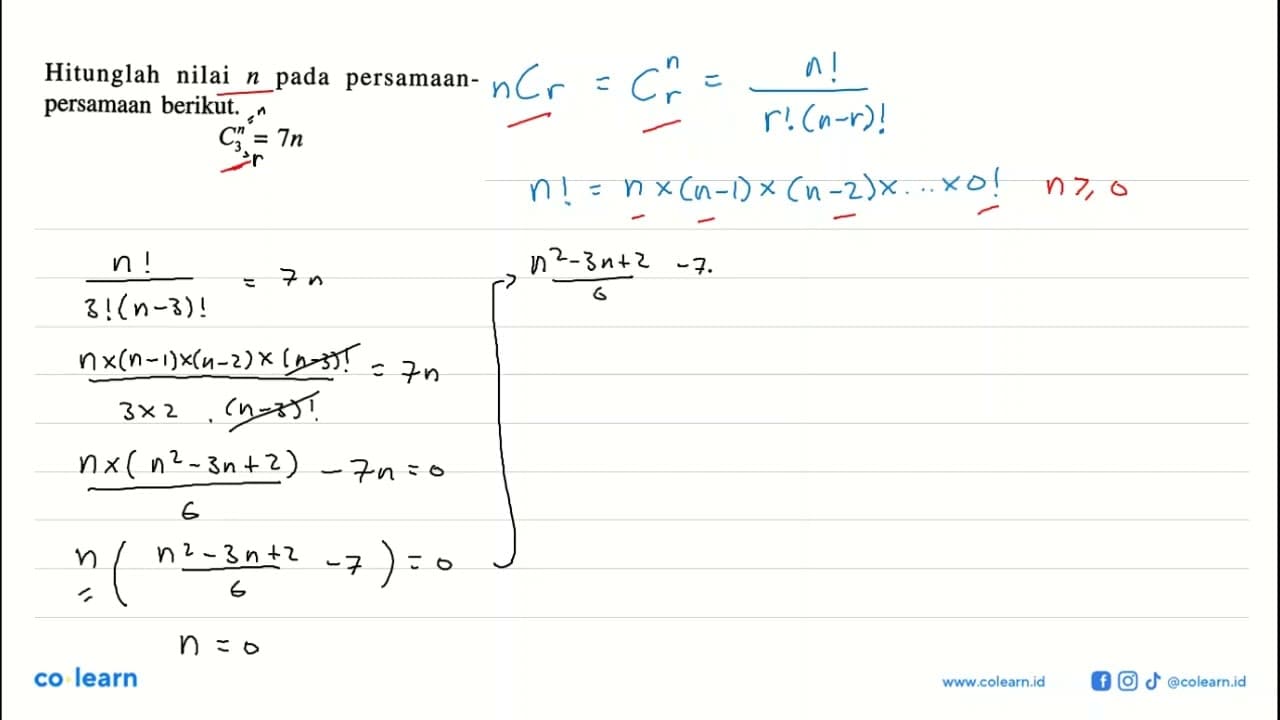 Hitunglah nilai n pada persamaan-
persamaan berikut.
n
C₃ⁿ = 7n
r
nCr = Cᵣⁿ = n! / r!(n-r)!
n! = n×(n-1)×(n-2)×...×0! n≥0
n! / 3!(n-3)! = 7n
n×(n-1)×(n-2)×(n-3)! / 3×2 . (n-3)! = 7n
n×(n²-3n+2) / 6 - 7n = 0
n ( n²-3n+2 / 6 - 7 ) = 0
n = 0
n²-3n+2 / 6 - 7.
co learn
www.colearn.id
@colearn.id